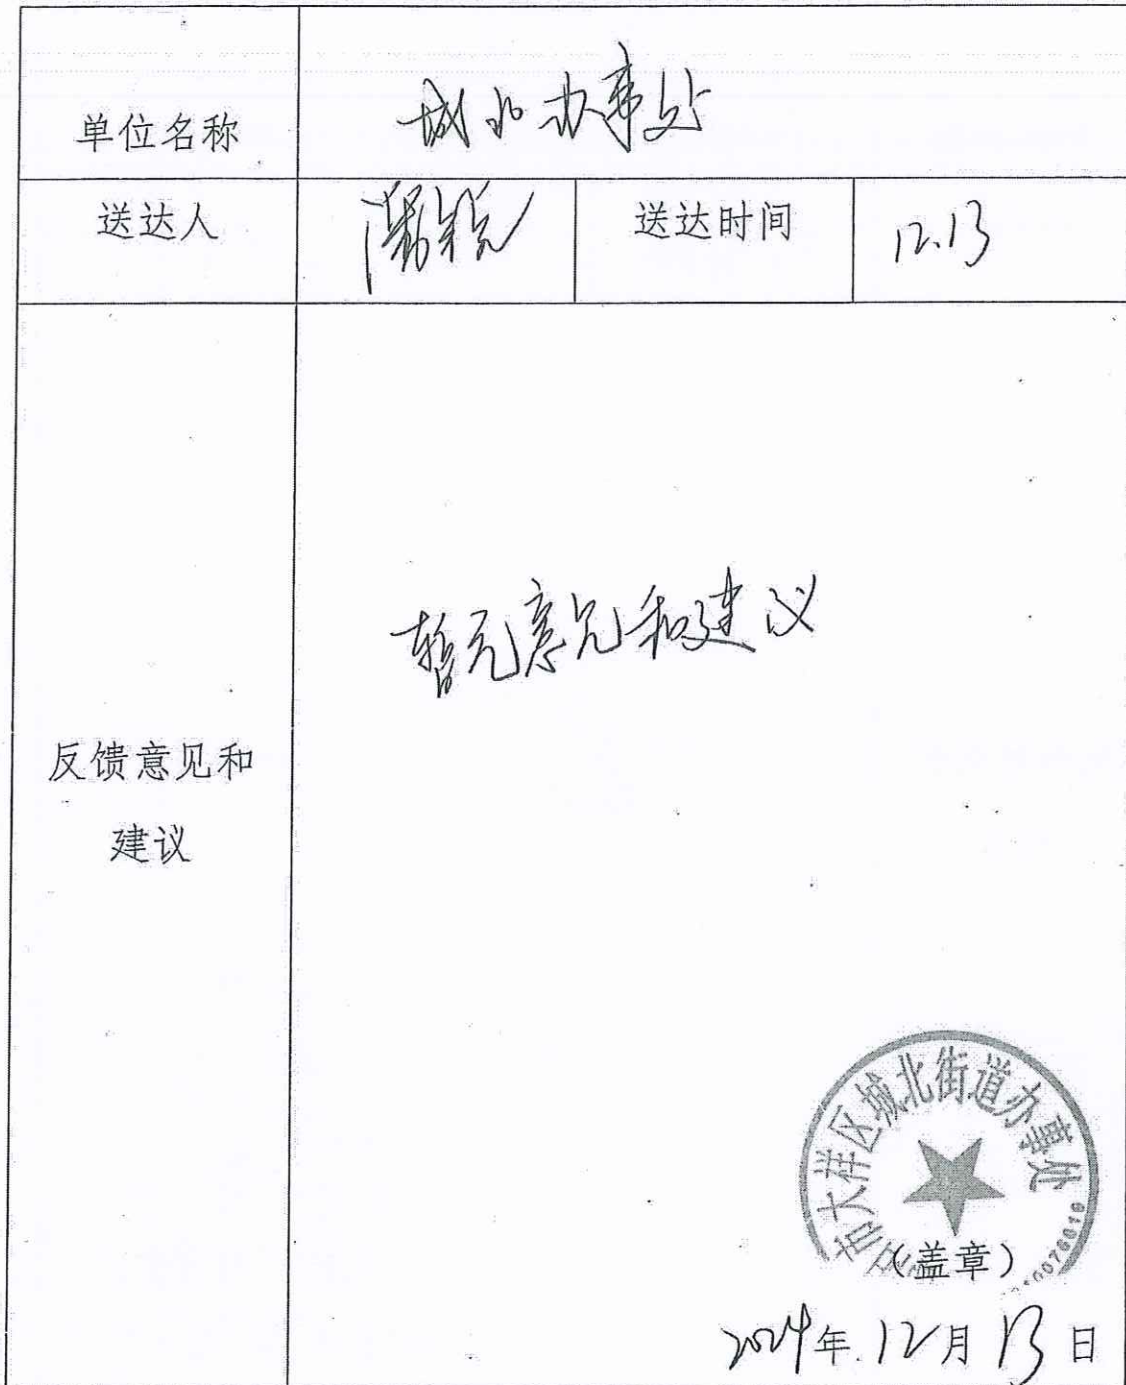 单位名称 城北办事处
送达人 送达时间 12.13
暂无意见和建议
反馈意见和
建议
市大祥区城北街道办事处
(盖章)
2024年12月13日